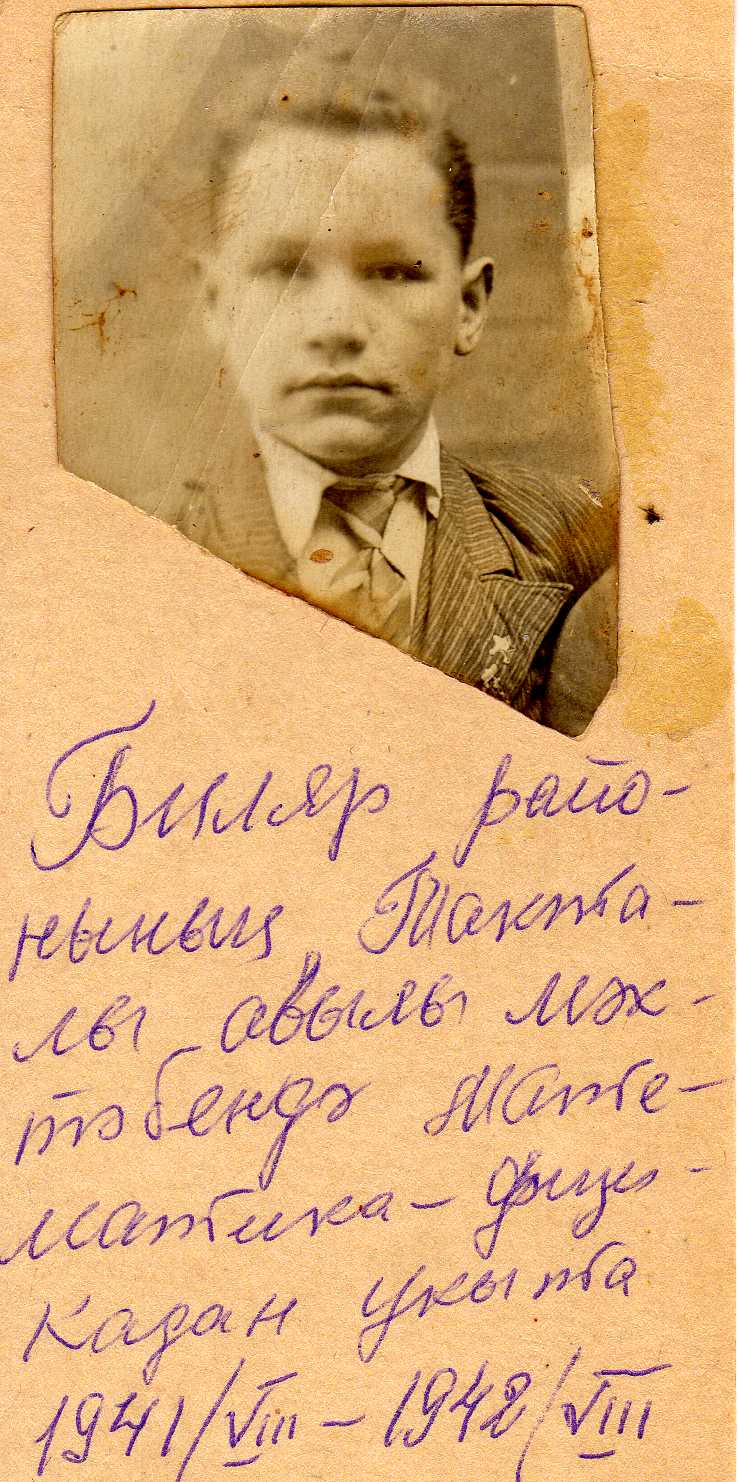 Биляр райо-
нының Такта-
лы авылы мәк-
тәбендә мате-
матика-физи-
кадан укыта
1941/VIII – 1942/VIII